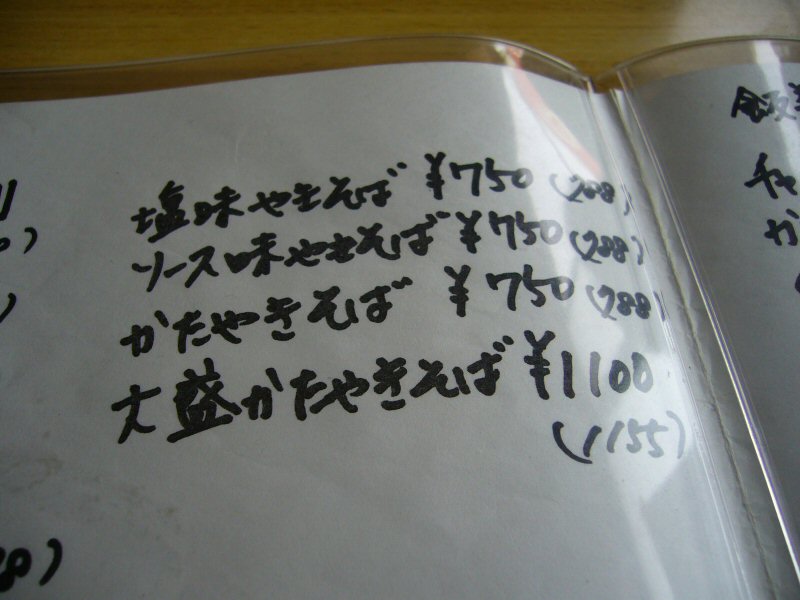 塩味やきそば ¥750 (788)
ソース味やきそば ¥750 (788)
かたやきそば ¥750 (788)
大盛かたやきそば ¥1100
(1155)
8)
飯
チャ
か